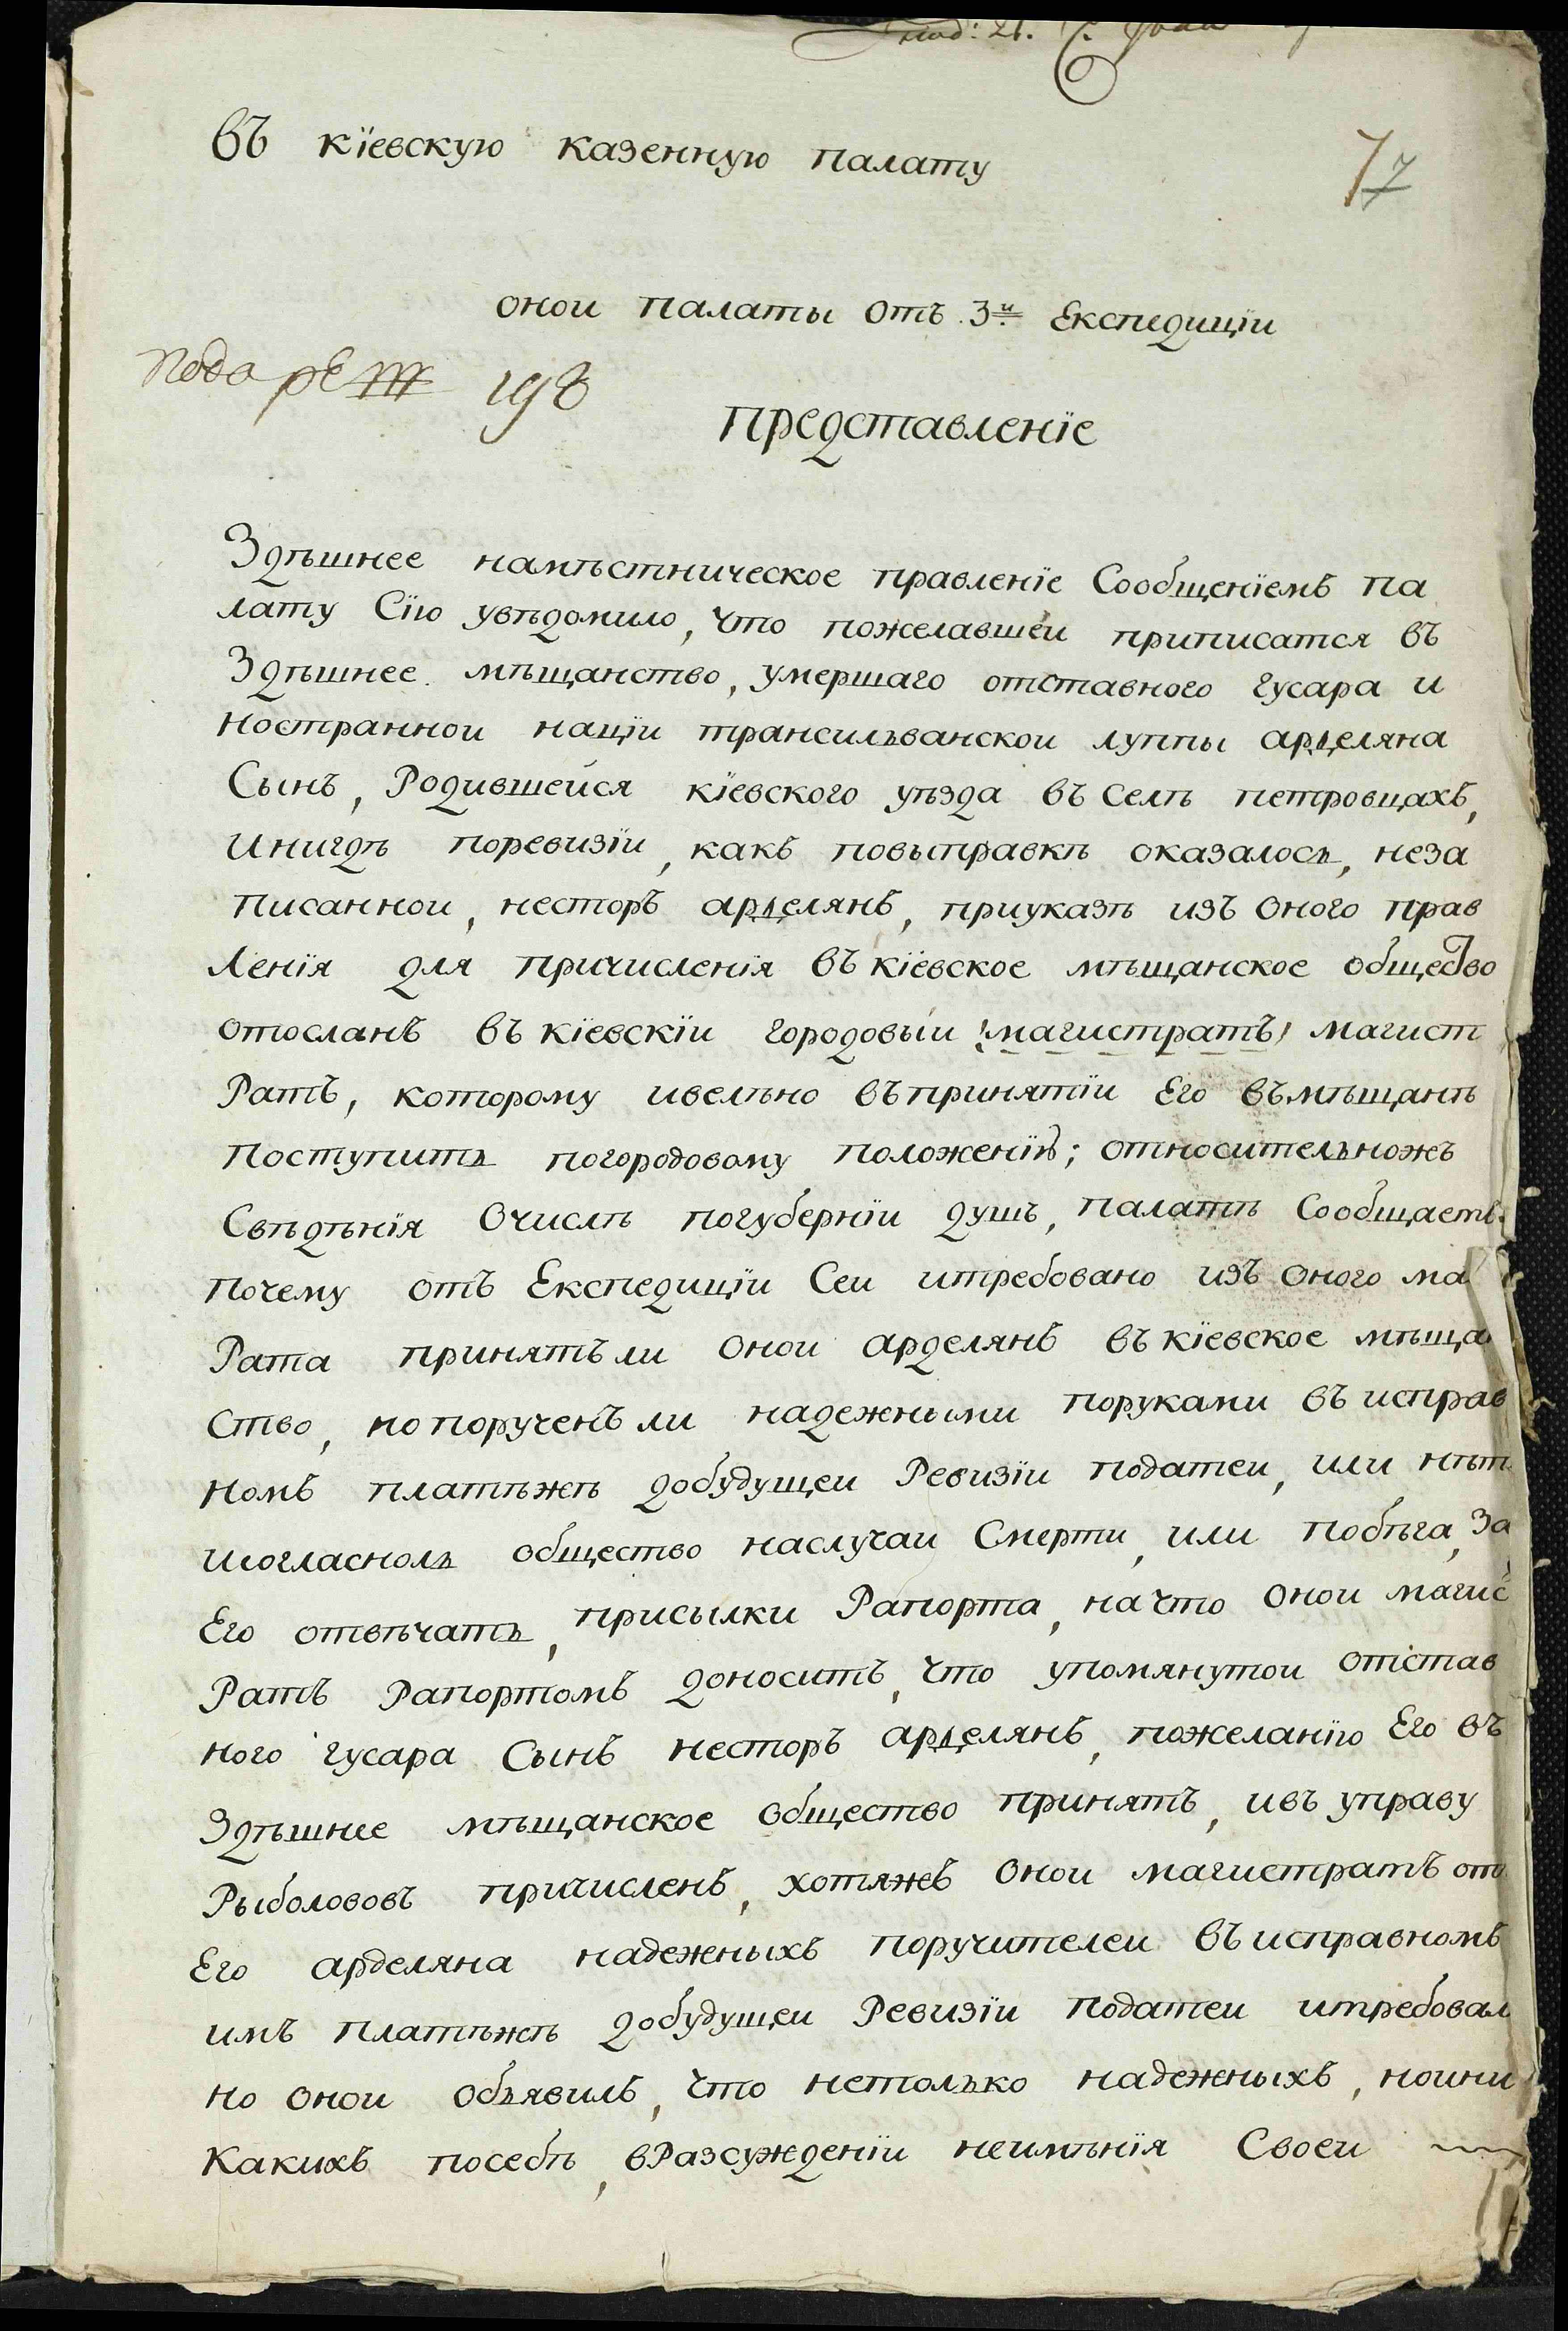 въ кїевскую казенную палату
77
оной палаты отъ 3й Експедицїи
198
представленїе
Здѣшнее намѣстническое правленїе Сообщенїемъ па
лату Сїю увѣдомило, что пожелавшей приписатся въ
Здѣшнее мѣщанство, умершаго отставного гусара и
ностранной нацїи трансильванской луппы арделяна
Сынъ, Родившейся кїевского уѣзда въ Селѣ петровцахъ,
инигдѣ поревизїи, какъ повыправкѣ оказалось, неза
писанной, несторъ арделянъ, приуказѣ изъ оного прав
ленїя для причисленїя въ кїевское мѣщанское общество
отосланъ въ кїевскїй городовый (магистратъ) магист
Ратъ, которому ивелѣно въпринятїи Его въмѣщанѣ
поступить погородовому положенїю; относительножъ
Свѣдѣнїя Очислѣ погубернїи душъ, палатѣ Сообщаетъ.
почему отъ Експедицїи Сей итребовано изъ оного ма
Рата принятъ ли оной арделянъ въ кїевское мѣща
Ство, попорученъ ли надежными поруками въ исправ
номъ платѣжѣ добудущей Ревизїи податей, или нѣт
исогласноль общество наслучай Смерти, или побѣга, За
Его отвѣчать, присылки Рапорта, на что оной магис
Ратъ Рапортомъ доноситъ, что упомянутой отстав
ного гусара Сынъ несторъ арделянъ, пожеланїю Его въ
Здѣшнее мѣщанское общество принятъ, ивъ управу
Рыболововъ причисленъ, хотяжъ оной магистратъ отъ
Его арделяна надежныхъ поручителей въ исправномъ
имъ платѣжѣ добудущей Ревизїи податей итребовал
но оной объявилъ, что нетолько надежныхъ,ноини
какихъ посебѣ, вРазсужденїи неимѣнїя Своей